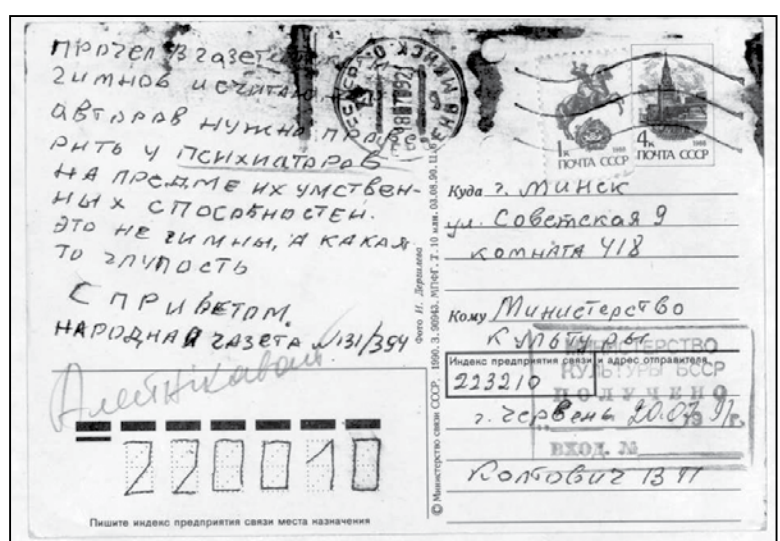 ПРОЧЕЛ В газете
гимнов и считаю
авторов нужно прове-
рить у психиатоРов
НА ПРЕДМЕ ИХ УМСТВЕН-
НЫХ СПОСОБНОСТЕЙ.
ЭТО НЕ ГИМНЫ, А КАКАЯ
ТО ГЛУПОСТЬ
С ПРИВЕТОМ.
НАРОДНАЯ ГАЗЕТА №131/354
Алейнікавай
220010
Пишите индекс предприятия связи места назначения
© Министерство связи СССР. 1990. З. 90943. МПФГ.
Фото И. Дергилева
1к 1988
ПОЧТА СССР
4к 1988
ПОЧТА СССР
Куда г. Минск
ул. Советская 9
комната 418
Кому Министерство
Культуры
Индекс предприятия связи и адрес отправителя
223210
г. Червень
Колтович В П
МИНИСТЕРСТВО
КУЛЬТУРЫ БССР
ПОЛУЧЕНО
20.07.91г.
ВХОД. №